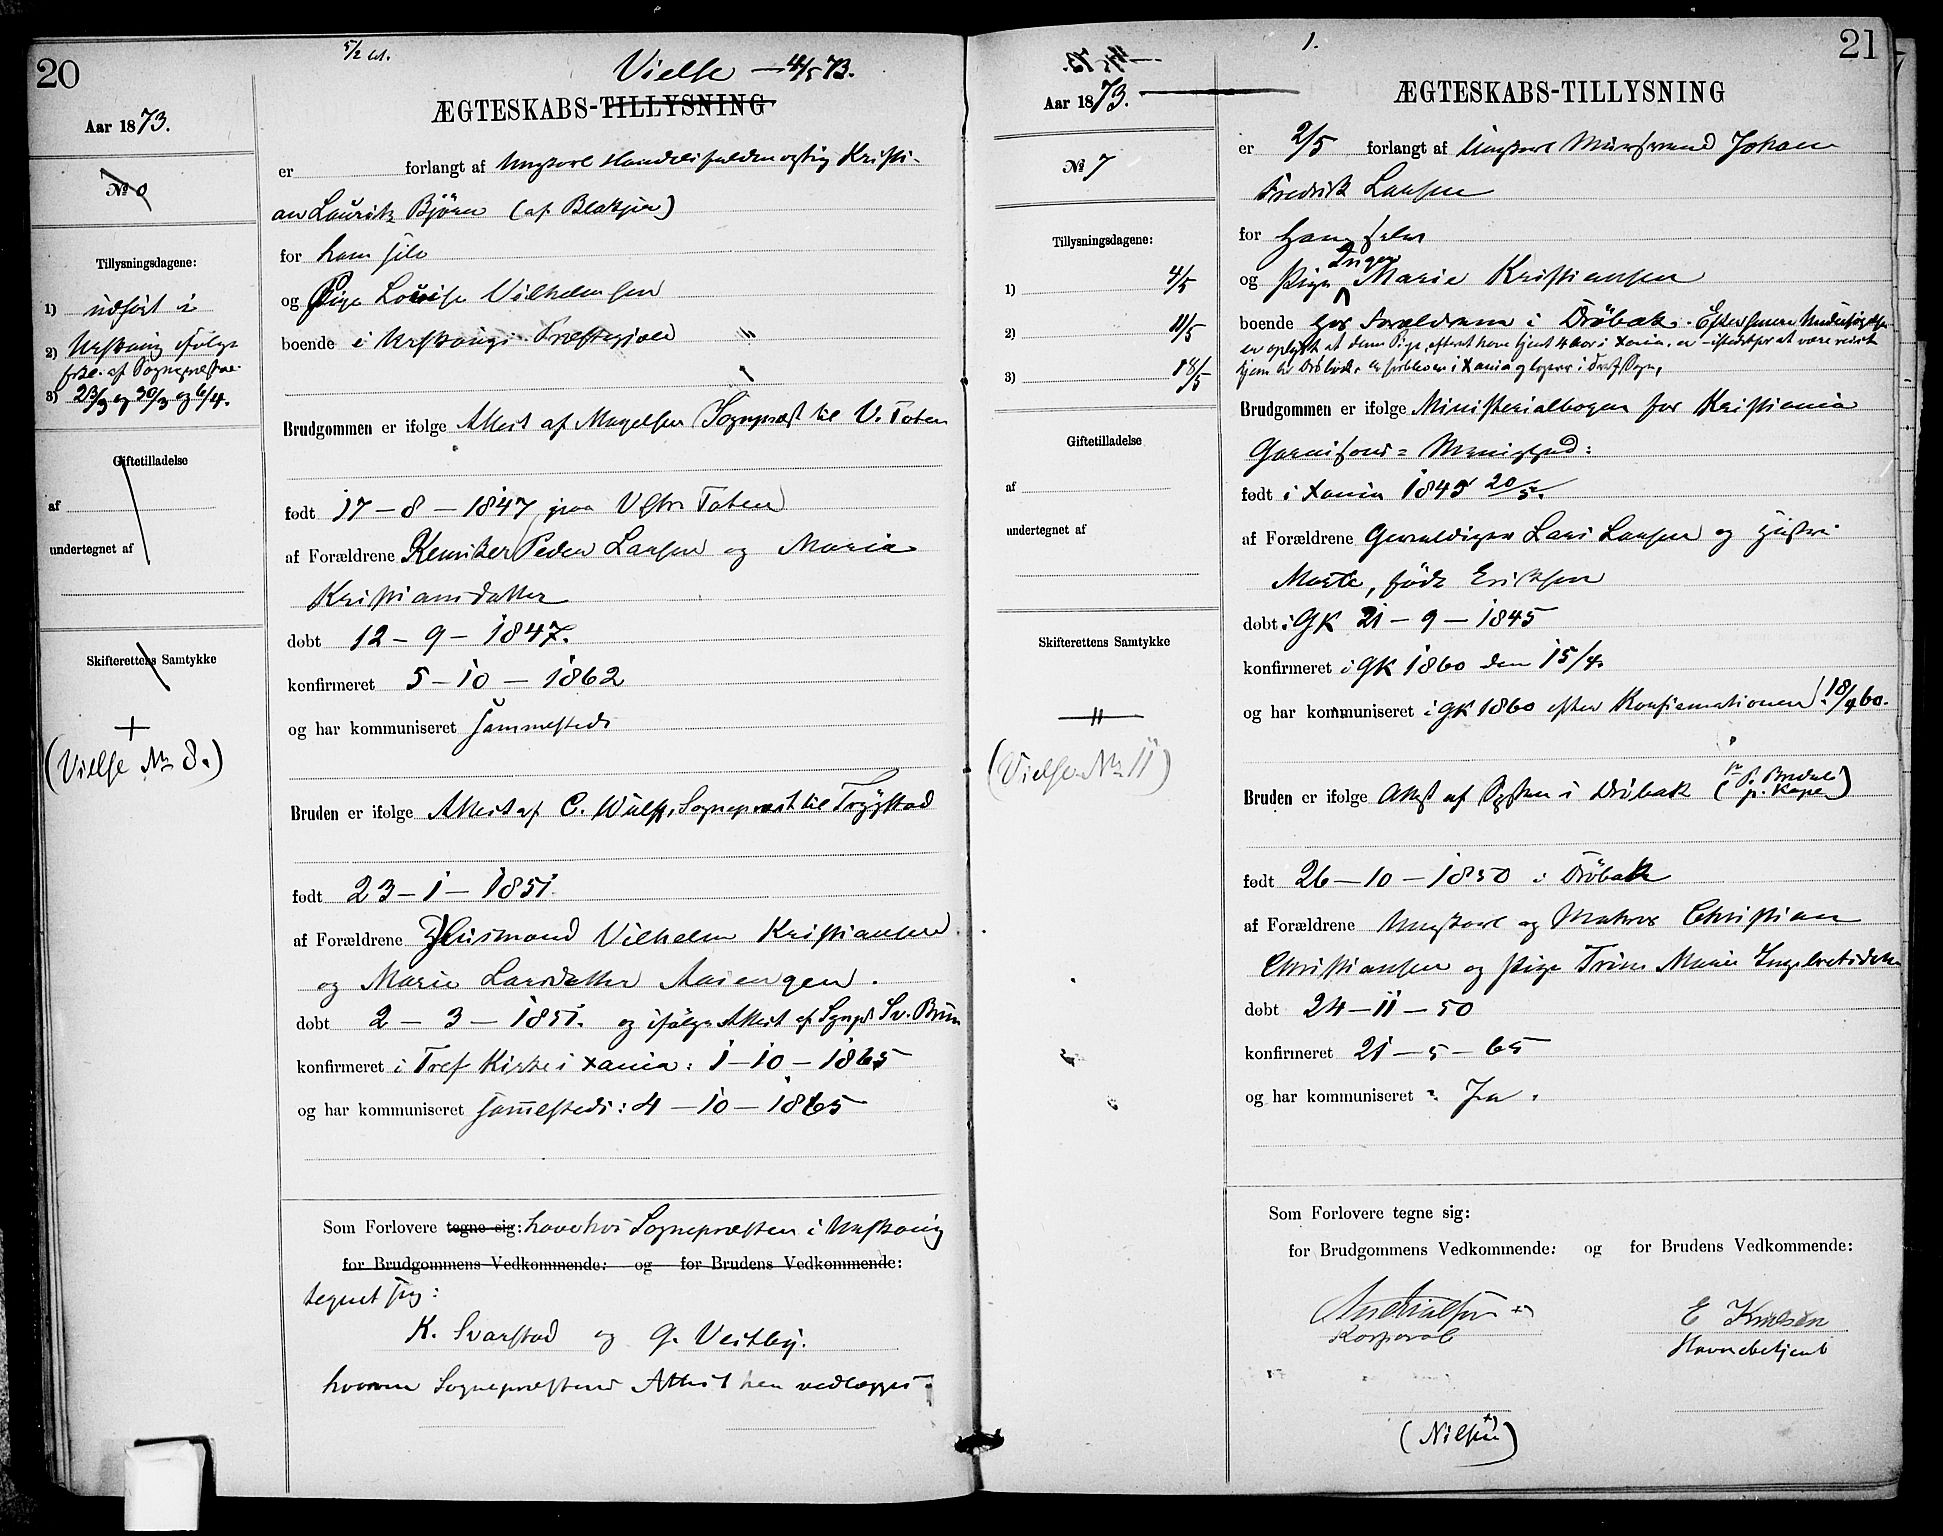 20
5/2
Vielse — 4/5 73.
Aar 1873.
ÆGTESKABS-TILLYSNING
er forlangt af Ungkarl Handelsfuldmægtig Kristi-
an Lauritz Bjørn (af Blakjer)
for ham selv
og Pige Louise Vilhelmsen
boende i Urskougs Præstegjæld "
Brudgommen er ifølge Attest af Magelsen Sogneprest til V. Toten
født 17 – 8 – 1847 paa Vestre Toten
af Forældrene Peder Larsen og Maria
Kristiansdatter
døbt 12 – 9 – 1847.
konfirmeret 5 – 10 – 1862
og har kommuniseret sammesteds
Bruden er ifølge Attest af C. Wulff, Sogneprest til Trygstad
født 23 – 1 – 1851.
af Forældrene Husmand Vilhelm Kristiansen
og Marie Larsdatter Aasengen.
døbt 2 – 3 – 1851. og ifølge Attest af Sognpr Sv. Brun
konfirmeret i Tref Kirke i Xania: 1 – 10 – 1865
og har kommuniseret sammesteds: 4 – 10 – 1865
Som Forlovere tegne sig: have hos Sognepræsten i Urskoug
for Brudgommens Vedkommende: og for Brudens Vedkommende:
tegnet sig:
K. Svarstad og G. Vestby.
hvorom Sogneprestens Attest her vedlægges.
No
Tillysningsdagene:
1) udført i
2) Urskoug ifølge
af Sognepræsten
3) 23/3 og 30/3 og 6/4.
Giftetilladelse
af
undertegnet af
Skifterettens Samtykke
+
(Vielse No 8.)
1.
21
Aar 1873.
ÆGTESKABS-TILLYSNING
No 7
er 2/5 forlangt af Ungkarl Mursvend Johan
Fredrik Larsen
for ham selv
og Pige Inger Marie Kristiansen
boende hos Forældrene i Drøbak. Efter senere Undersøgelse
er oplyst at denne Pige, efterat have tjent 4 Aar i Xania, er – istedetfor at være reist
hjem til Drøbak, er forbleven i Xania og logerer i Tref Sogn,
Brudgommen er ifølge Ministerialbogen for Kristiania
Garnisons-Menighed:
født i Xania 1845 20/5.
af Forældrene Gevaldiger Lars Larsen og Hustru
Marte, født Eriksen
døbt i GK 21 – 9 – 1845
konfirmeret i GK 1860 den 15/4.
og har kommuniseret i GK 1860 efter Konfirmationen! 18/9 60.
Bruden er ifølge Attest af Presten i Drøbak (P. Bredal
p. Kape)
født 26 – 10 – 1850 i Drøbak
af Forældrene Ungkarl og Matros Christian
Christiansen og Pige Trine Marie Ingebretsdatter
døbt 24 – 11 – 50
konfirmeret 21 – 5 – 65
og har kommuniseret : Ja.
Som Forlovere tegne sig:
for Brudgommens Vedkommende: og for Brudens Vedkommende:
Korporal
E Knudsen
Havnebetjent
(Nilsen)
Tillysningsdagene:
1) 4/5
2) 11/5
3) 18/5
Giftetilladelse
af
undertegnet af
Skifterettens Samtykke
"
(Vielse No 11)